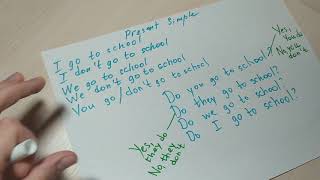 Present Simple
I go to school
I don't go to school
We go to school
We don't go to school
You go / don't go to school
Do you go to school?
Yes, you do
No, you don't
Do they go to school?
Yes, they do
No, they don't
Do we go to school?
Do I go to school?